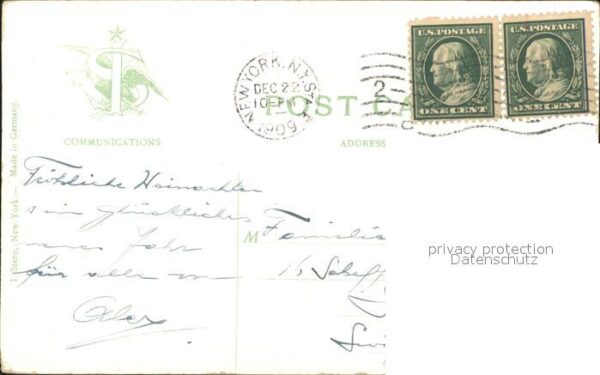 U.S.POSTAGE
ONE CENT
U.S.POSTAGE
ONE CENT
NEW YORK, N.Y. STA.
DEC 22
10 PM
1909
2
POST CA
COMMUNICATIONS
ADDRESS
J. Stern, New York — Made in Germany.
Fröhliche Weinachten
ein glückliches
neues Jahr
für alle von
Alex
M Familie
privacy protection
Datenschutz